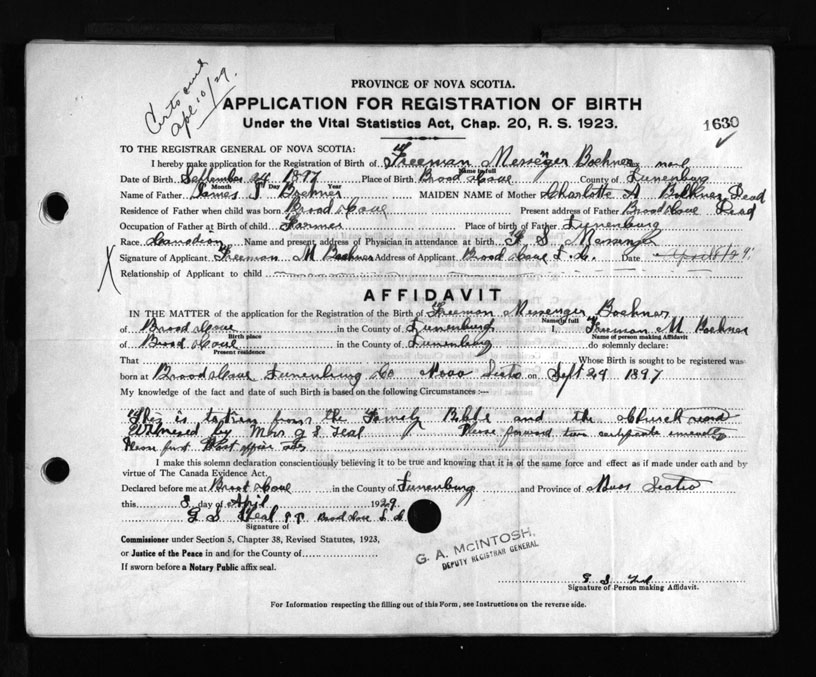 Certs send
Apl 10/29.
PROVINCE OF NOVA SCOTIA.
APPLICATION FOR REGISTRATION OF BIRTH
Under the Vital Statistics Act, Chap. 20, R. S. 1923.
1630
TO THE REGISTRAR GENERAL OF NOVA SCOTIA:
I hereby make application for the Registration of Birth of Freeman Messenger Boehner
Name in full
Date of Birth September 29 1897 Place of Birth Broad Cove County of Lunenburg
Month Day Year
Name of Father James S Boehner MAIDEN NAME of Mother Charlotte A Boehner Dead
Residence of Father when child was born Broad Cove Present address of Father Broad Cove Dead
Occupation of Father at Birth of child Farmer Place of birth of Father Lunenburg
Race Canadian Name and present address of Physician in attendance at birth F S Messenger
Signature of Applicant Freeman M Boehner Address of Applicant Broad Cove L. Co. Date April 8/29
Relationship of Applicant to child
AFFIDAVIT
IN THE MATTER of the application for the Registration of the Birth of Freeman Messenger Boehner
Name in full
of Broad Cove in the County of Lunenburg I, Freeman M Boehner
Birth place Name of person making Affidavit
of Broad Cove in the County of Lunenburg do solemnly declare:
Present residence
That Whose Birth is sought to be registered was
born at Broad Cove Lunenburg Co Nova Scotia on Sept 29 1897
My knowledge of the fact and date of such Birth is based on the following Circumstances:—
This is taken from the Family Bible and the Church record
Witnessed by Mrs G S Teal Please forward two certificate
Please find Post office
I make this solemn declaration conscientiously believing it to be true and knowing that it is of the same force and effect as if made under oath and by
virtue of The Canada Evidence Act.
Declared before me at Broad Cove in the County of Lunenburg and Province of Nova Scotia
this 8 day of April 1929
G S Teal Broad Cove L. Co
Signature of
Commissioner under Section 5, Chapter 38, Revised Statutes, 1923,
or Justice of the Peace in and for the County of
If sworn before a Notary Public affix seal.
G. A. McINTOSH,
DEPUTY REGISTRAR GENERAL
Signature of Person making Affidavit.
For Information respecting the filling out of this Form, see Instructions on the reverse side.